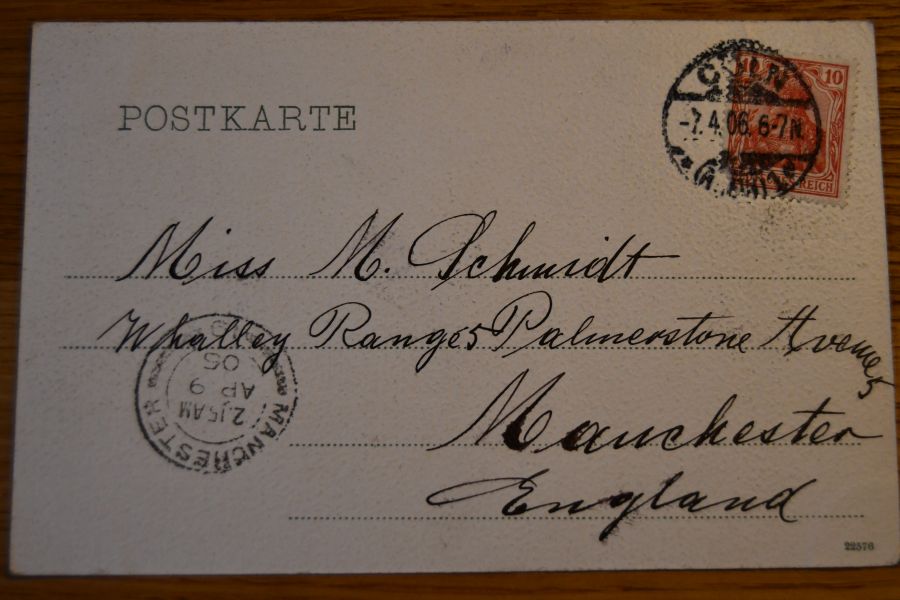 POSTKARTE
CÖLN
-7.4.06. 6-7N.
10
REICH
Miss M. Schmidt
Whalley Range 5 Palmerstone Avenue 5
Manchester
England
MANCHESTER
2.15 AM
AP 9
05
22576